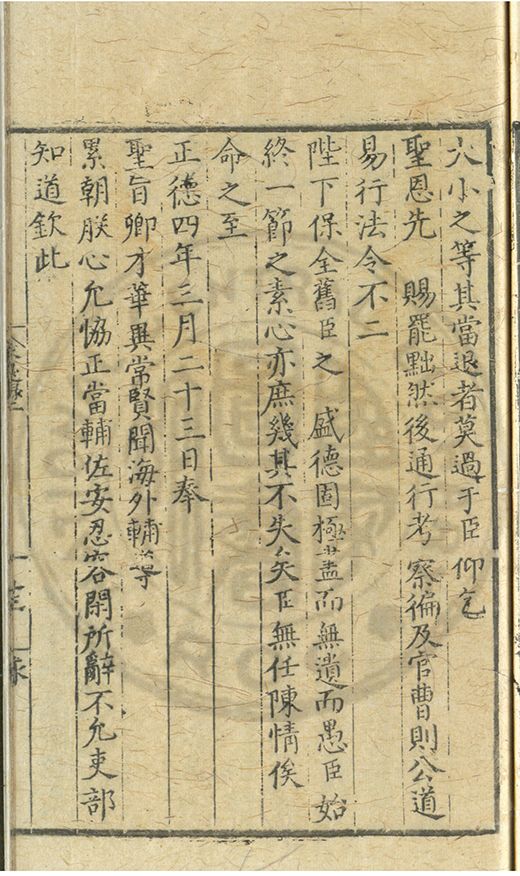 大小之等其當退者莫過于臣 仰乞
聖恩先 賜罷黜然後通行考察徧及官曹則公道
易行法令不二
陛下保全舊臣之 盛德固極盡而無遺而愚臣始
終一節之素心亦庶幾其不失矣臣無任陳情俟
命之至
正德四年三月二十三日奉
聖旨卿才華異常賢聞海外輔導
累朝朕心允恊正當輔佐安忍容閑所辭不允吏部
知道欽此